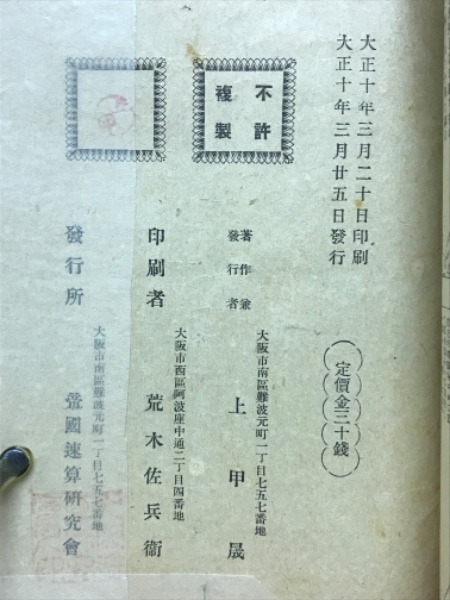 大正十年三月二十日印刷
大正十年三月廿五日發行
不許
複製
定價金三十錢
著作兼
發行者
大阪市南區難波元町一丁目七五七番地
上甲晟
印刷者
大阪市西區阿波座中通二丁目四番地
荒木佐兵衞
發行所
大阪市南區難波元町一丁目七五七番地
國速算研究會